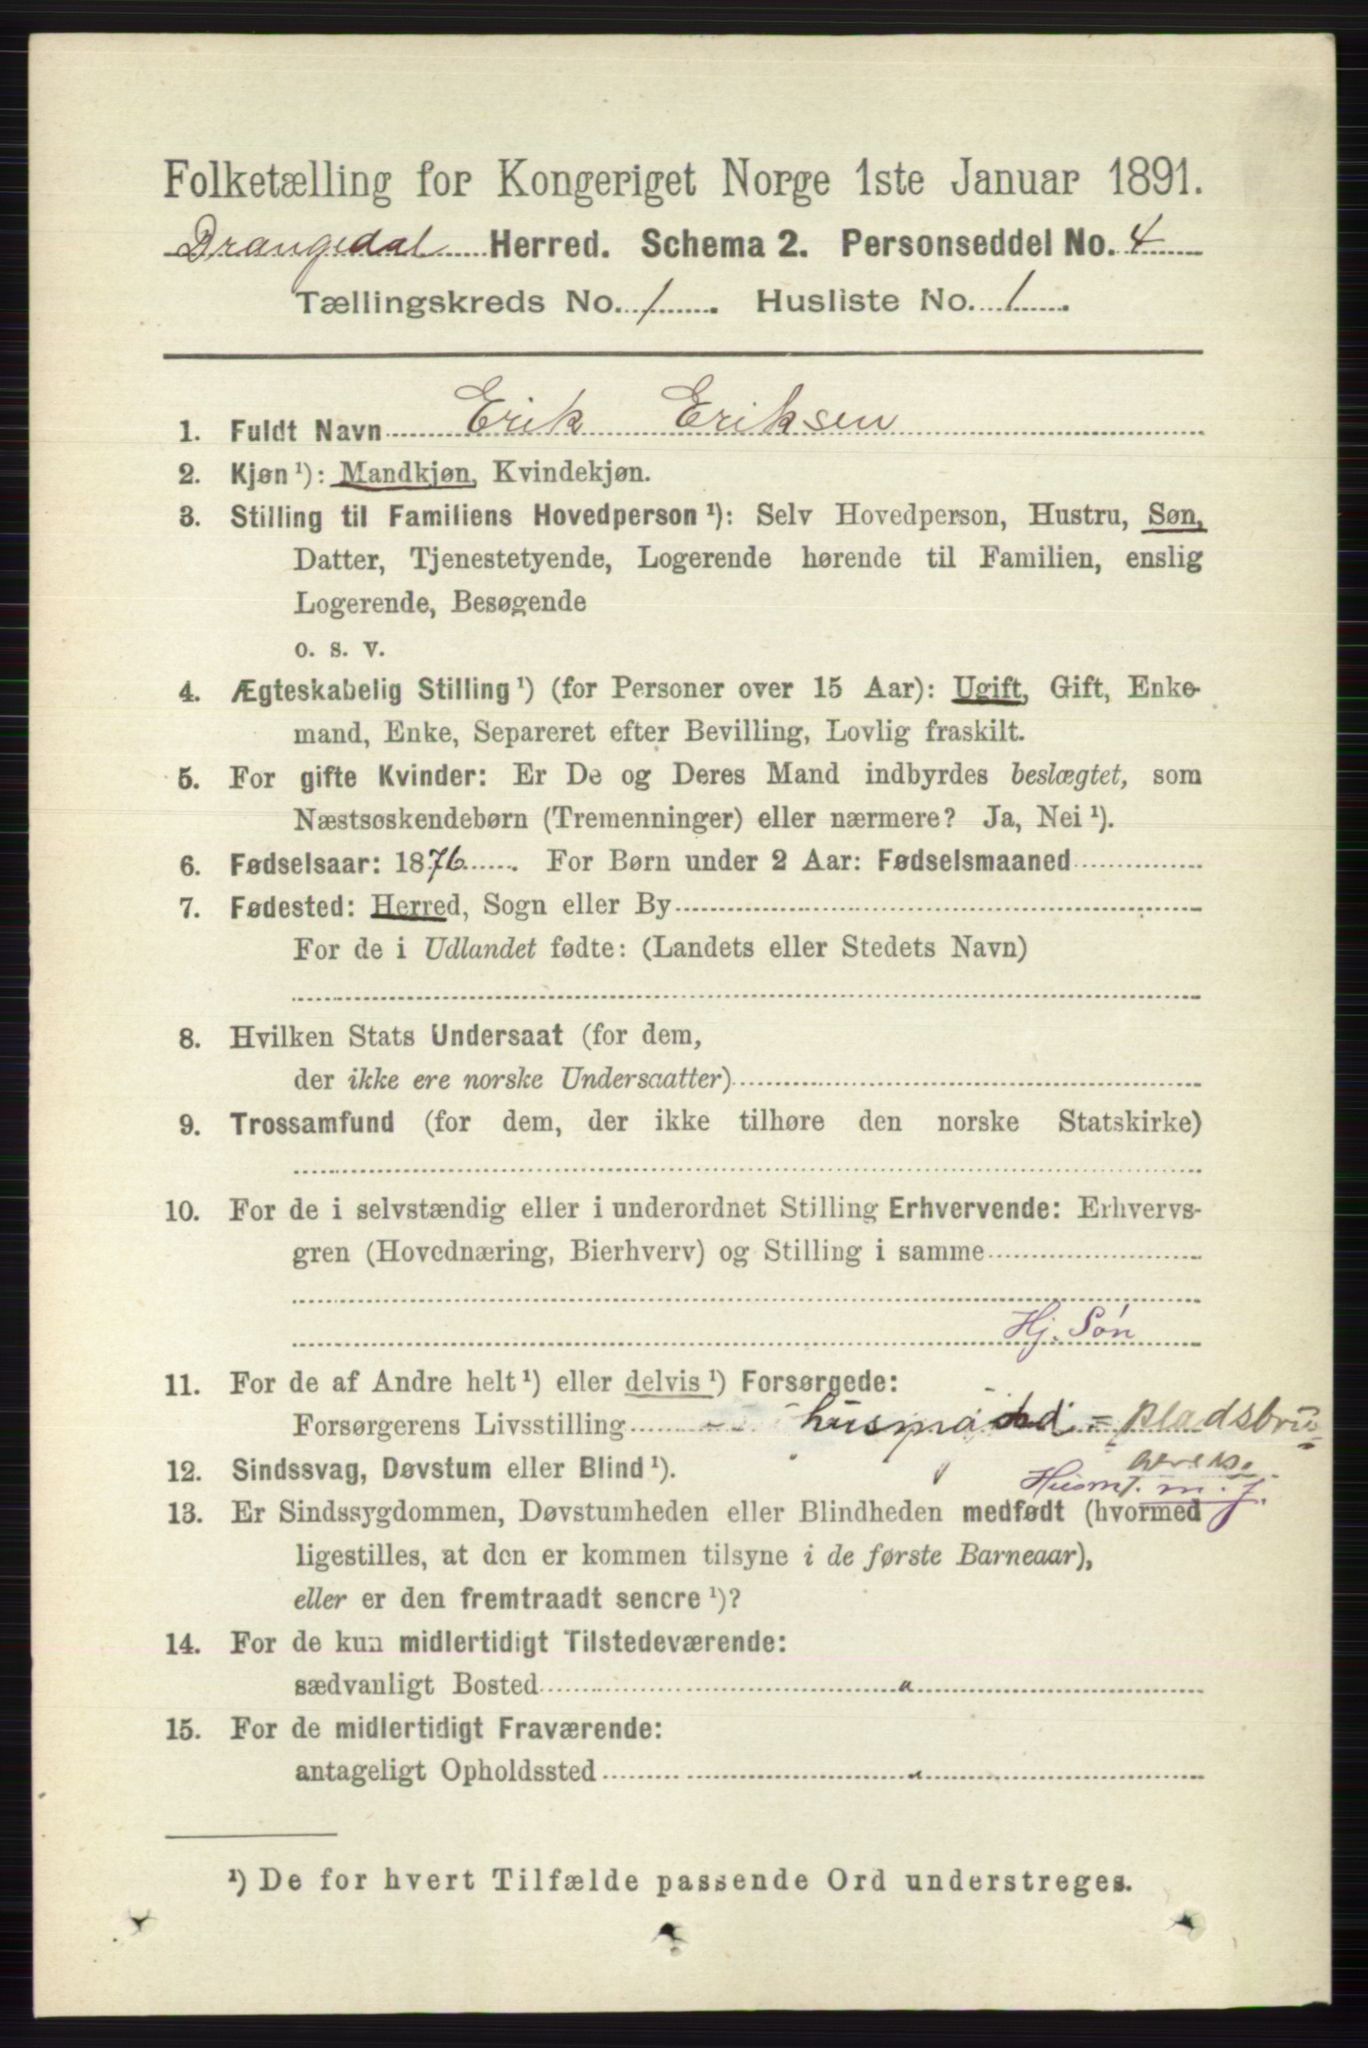 Folketælling for Kongeriget Norge 1ste Januar 1891.
Drangedal Herred. Schema 2. Personseddel No. 4
Tællingskreds No. 1. Husliste No. 1.
1. Fuldt Navn Erik Eriksen
2. Kjøn ¹): Mandkjøn, Kvindekjøn.
3. Stilling til Familiens Hovedperson ¹): Selv Hovedperson, Hustru, Søn,
Datter, Tjenestetyende, Logerende hørende til Familien, enslig
Logerende, Besøgende
o. s. v.
4. Ægteskabelig Stilling ¹) (for Personer over 15 Aar): Ugift, Gift, Enke-
mand, Enke, Separeret efter Bevilling, Lovlig fraskilt.
5. For gifte Kvinder: Er De og Deres Mand indbyrdes beslægtet, som
Næstsøskendebørn (Tremenninger) eller nærmere? Ja, Nei ¹).
6. Fødselsaar: 1876. For Børn under 2 Aar: Fødselsmaaned
7. Fødested: Herred, Sogn eller By
For de i Udlandet fødte: (Landets eller Stedets Navn)
8. Hvilken Stats Undersaat (for dem,
der ikke ere norske Undersaatter)
9. Trossamfund (for dem, der ikke tilhøre den norske Statskirke)
10. For de i selvstændig eller i underordnet Stilling Erhvervende: Erhvervs-
gren (Hovednæring, Bierhverv) og Stilling i samme
Hj. Søn
11. For de af Andre helt ¹) eller delvis ¹) Forsørgede:
Forsørgerens Livsstilling husmand = Pladsbru
12. Sindssvag, Døvstum eller Blind ¹).
Husm. m. j.
13. Er Sindssygdommen, Døvstumheden eller Blindheden medfødt (hvormed
ligestilles, at den er kommen tilsyne i de første Barneaar),
eller er den fremtraadt senere ¹)?
14. For de kun midlertidigt Tilstedeværende:
sædvanligt Bosted "
15. For de midlertidigt Fraværende:
antageligt Opholdssted "
¹) De for hvert Tilfælde passende Ord understreges.